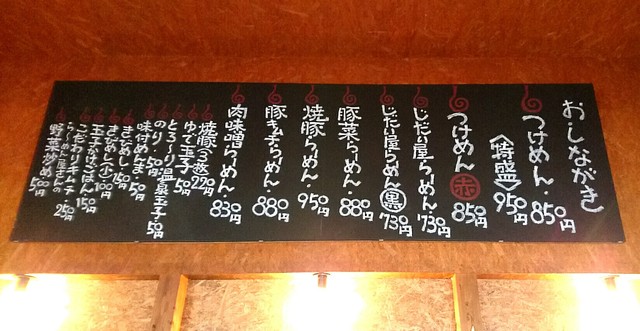 おしながき
つけめん・850円
〈特盛〉950円
つけめん赤 850円
じだい屋らーめん 730円
じだい屋らーめん黒 730円
豚菜らーめん・880円
焼豚らーめん・950円
豚キムチらーめん・880円
肉味噌らーめん・830円
焼豚3枚220円
ゆで玉子 50円
とろ〜り温泉玉子 50円
のり・50円
味付めんま・50円
きざめし 150円
きざめし(小)100円
玉子かけごはん 150円
こだわりキムチ 250円
野菜炒め 500円